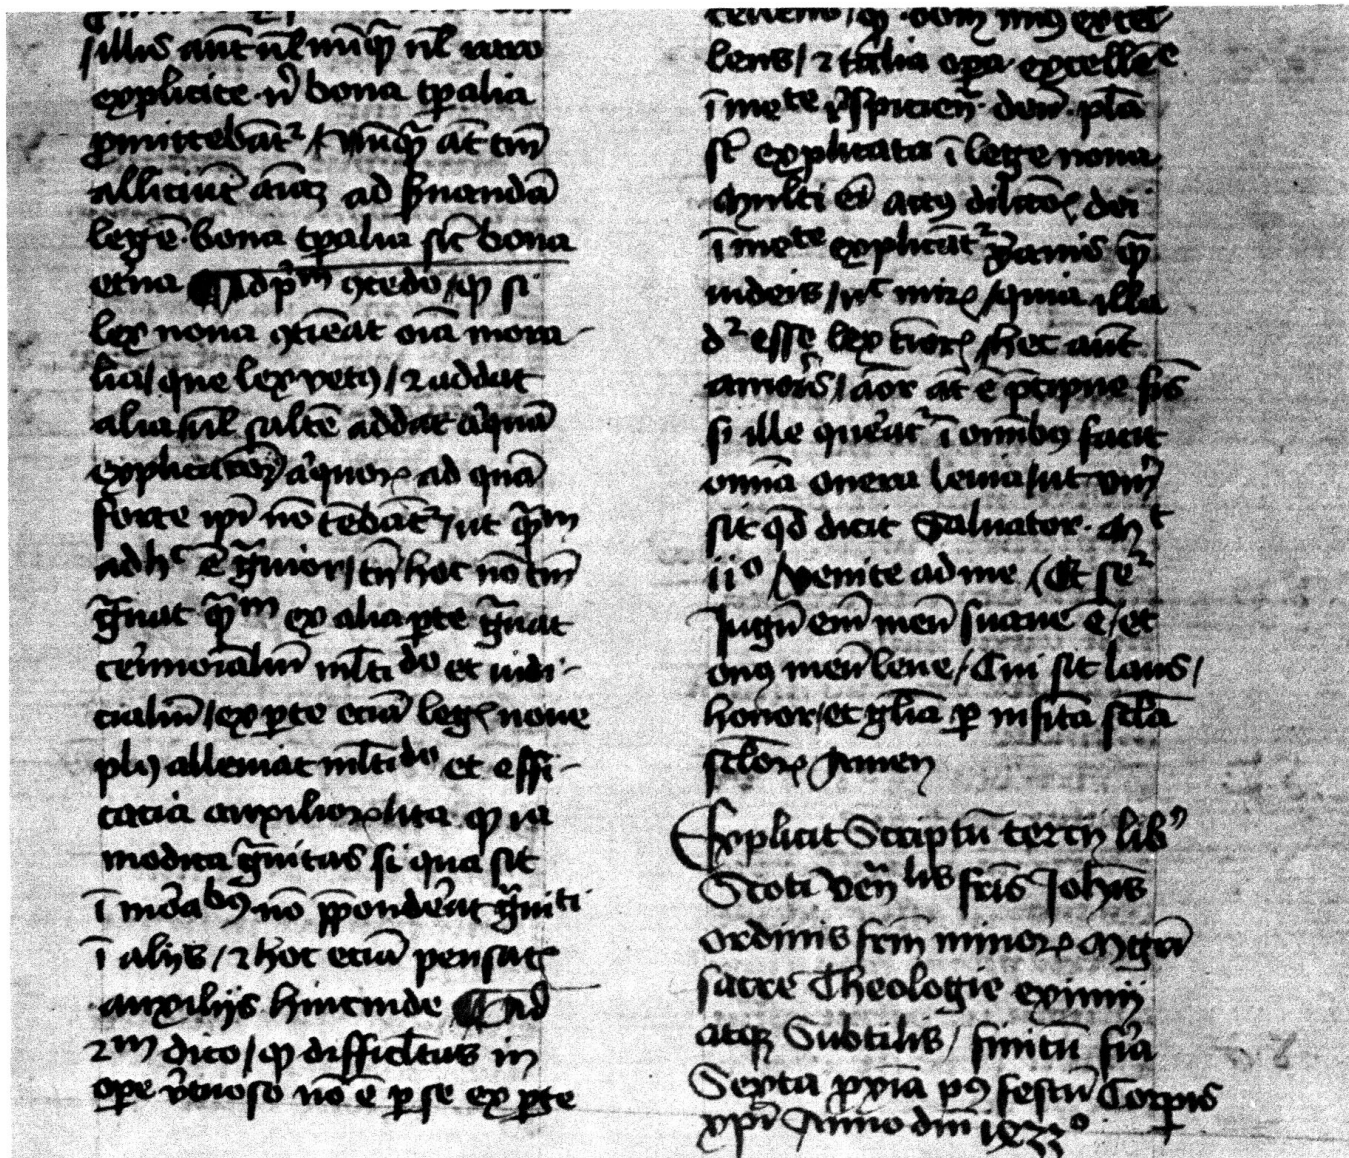 illis aut̄ ul̄ nūq̄ ul̄ raro
explicite n̄ bona tp̄alia
ꝓmittebāt᷑ / Nūq̄ at̄ tm̄
alliciūt ad ẜuandā
legē bona tp̄alia sic̄ bona
et̄na ¶ Ad pᵐ ꝯcedo / ꝙ si
lex noua ꝯtīeat oīa mora-
lia / que lex vetꝰ / ⁊ addat
alia / ul̄ saltē addat aꝗuā
explicatōꝫ aꝗuoꝝ ad quā
forte ip̄i nō tēbāt᷑ / ut qᵐ
ad hᶜ ē gͣuior / tn̄ hoc nō tm̄
gͣuat qᵐ ex alia ꝑte gͣuat
cerimoīaliū ml̄tiᵈᵒ et iudi-
cialiū / ex ꝑte eciā legꝭ noue
plꝰ alleuiat ml̄tiᵈᵒ et effi-
catia auxilioꝝ / ita ꝙ ia
modica gͣuitas si qua sit
ī moͣbꝰ nō p̄ponderat gͣuiti
ī alijs / ⁊ hoc eciā pensat᷑
auxilijs hincinde ¶ Ad
2ᵐ dico / ꝙ difficl̄tas in
oꝑe v̓tuoso nō ē ꝑ se ex ꝑte
lens / ⁊ talia oꝑa excellēᵉ
īmeᵗᵉ deū pl̄a
st̄ explicata ī lege noua
Multi eī actꝰ dilitōꝭ dei
īmeᵗᵉ explicāt᷑ xͣanis qͣ
iudeis / nᶜ mirꝝ / quia illa
dʳ esse lex tīorꝭ / hec aut̄
amoris / aōr at̄ ē p̄cipue
si ille querat᷑ ī omībꝰ facit
omīa onera leuia / ut
sit qd̄ dicit Saluator Mᵗ
iiᵒ / Venite ad me / Et seʳ
Jugū enī meū suaue ē / et
onꝰ meū leue / Cui sit laus /
honor / et gl̄ia ꝑ infīta scl̄a
scl̄oꝝ Amen
Explicit Scriptū tercij libʳ
Scoti ven̄lis fr̄is Joh̄is
ordinis fr̄m minoꝝ Mgr̄i
sacre Theologie eximij
atqꝫ Subtilis / finitū fīa
Sexta ꝓxīa pꝰ festū Corꝑis
xp̄i Anno dn̄i 1433ᵒ